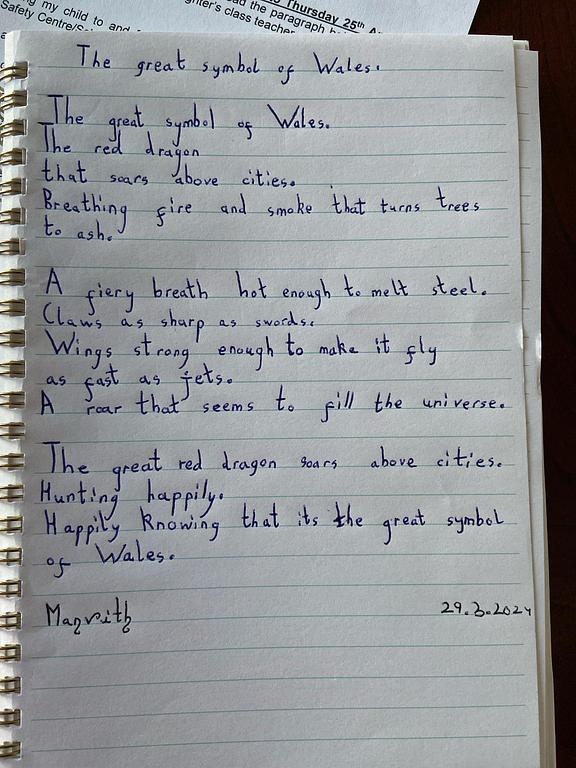 Thursday 25th
my child to and
Safety Centre/S
ad the paragraph
ghter's class teacher
The great symbol of Wales.
The great symbol of Wales.
The red dragon
that soars above cities.
Breathing fire and smoke that turns trees
to ash.
A fiery breath hot enough to melt steel.
Claws as sharp as swords.
Wings strong enough to make it fly
as fast as jets.
A roar that seems to fill the universe.
The great red dragon soars above cities.
Hunting happily.
Happily knowing that its the great symbol
of Wales.
29.3.2024